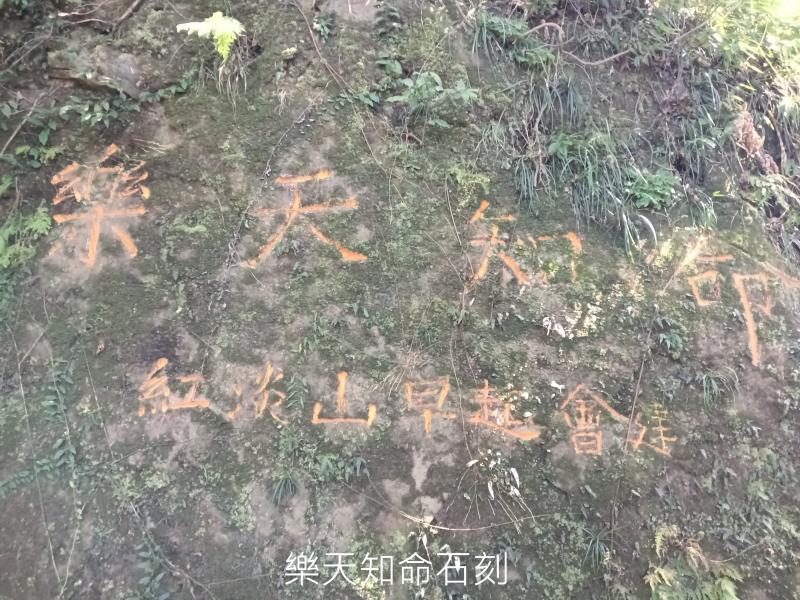 樂天知命
紅淡山早起會建
樂天知命石刻